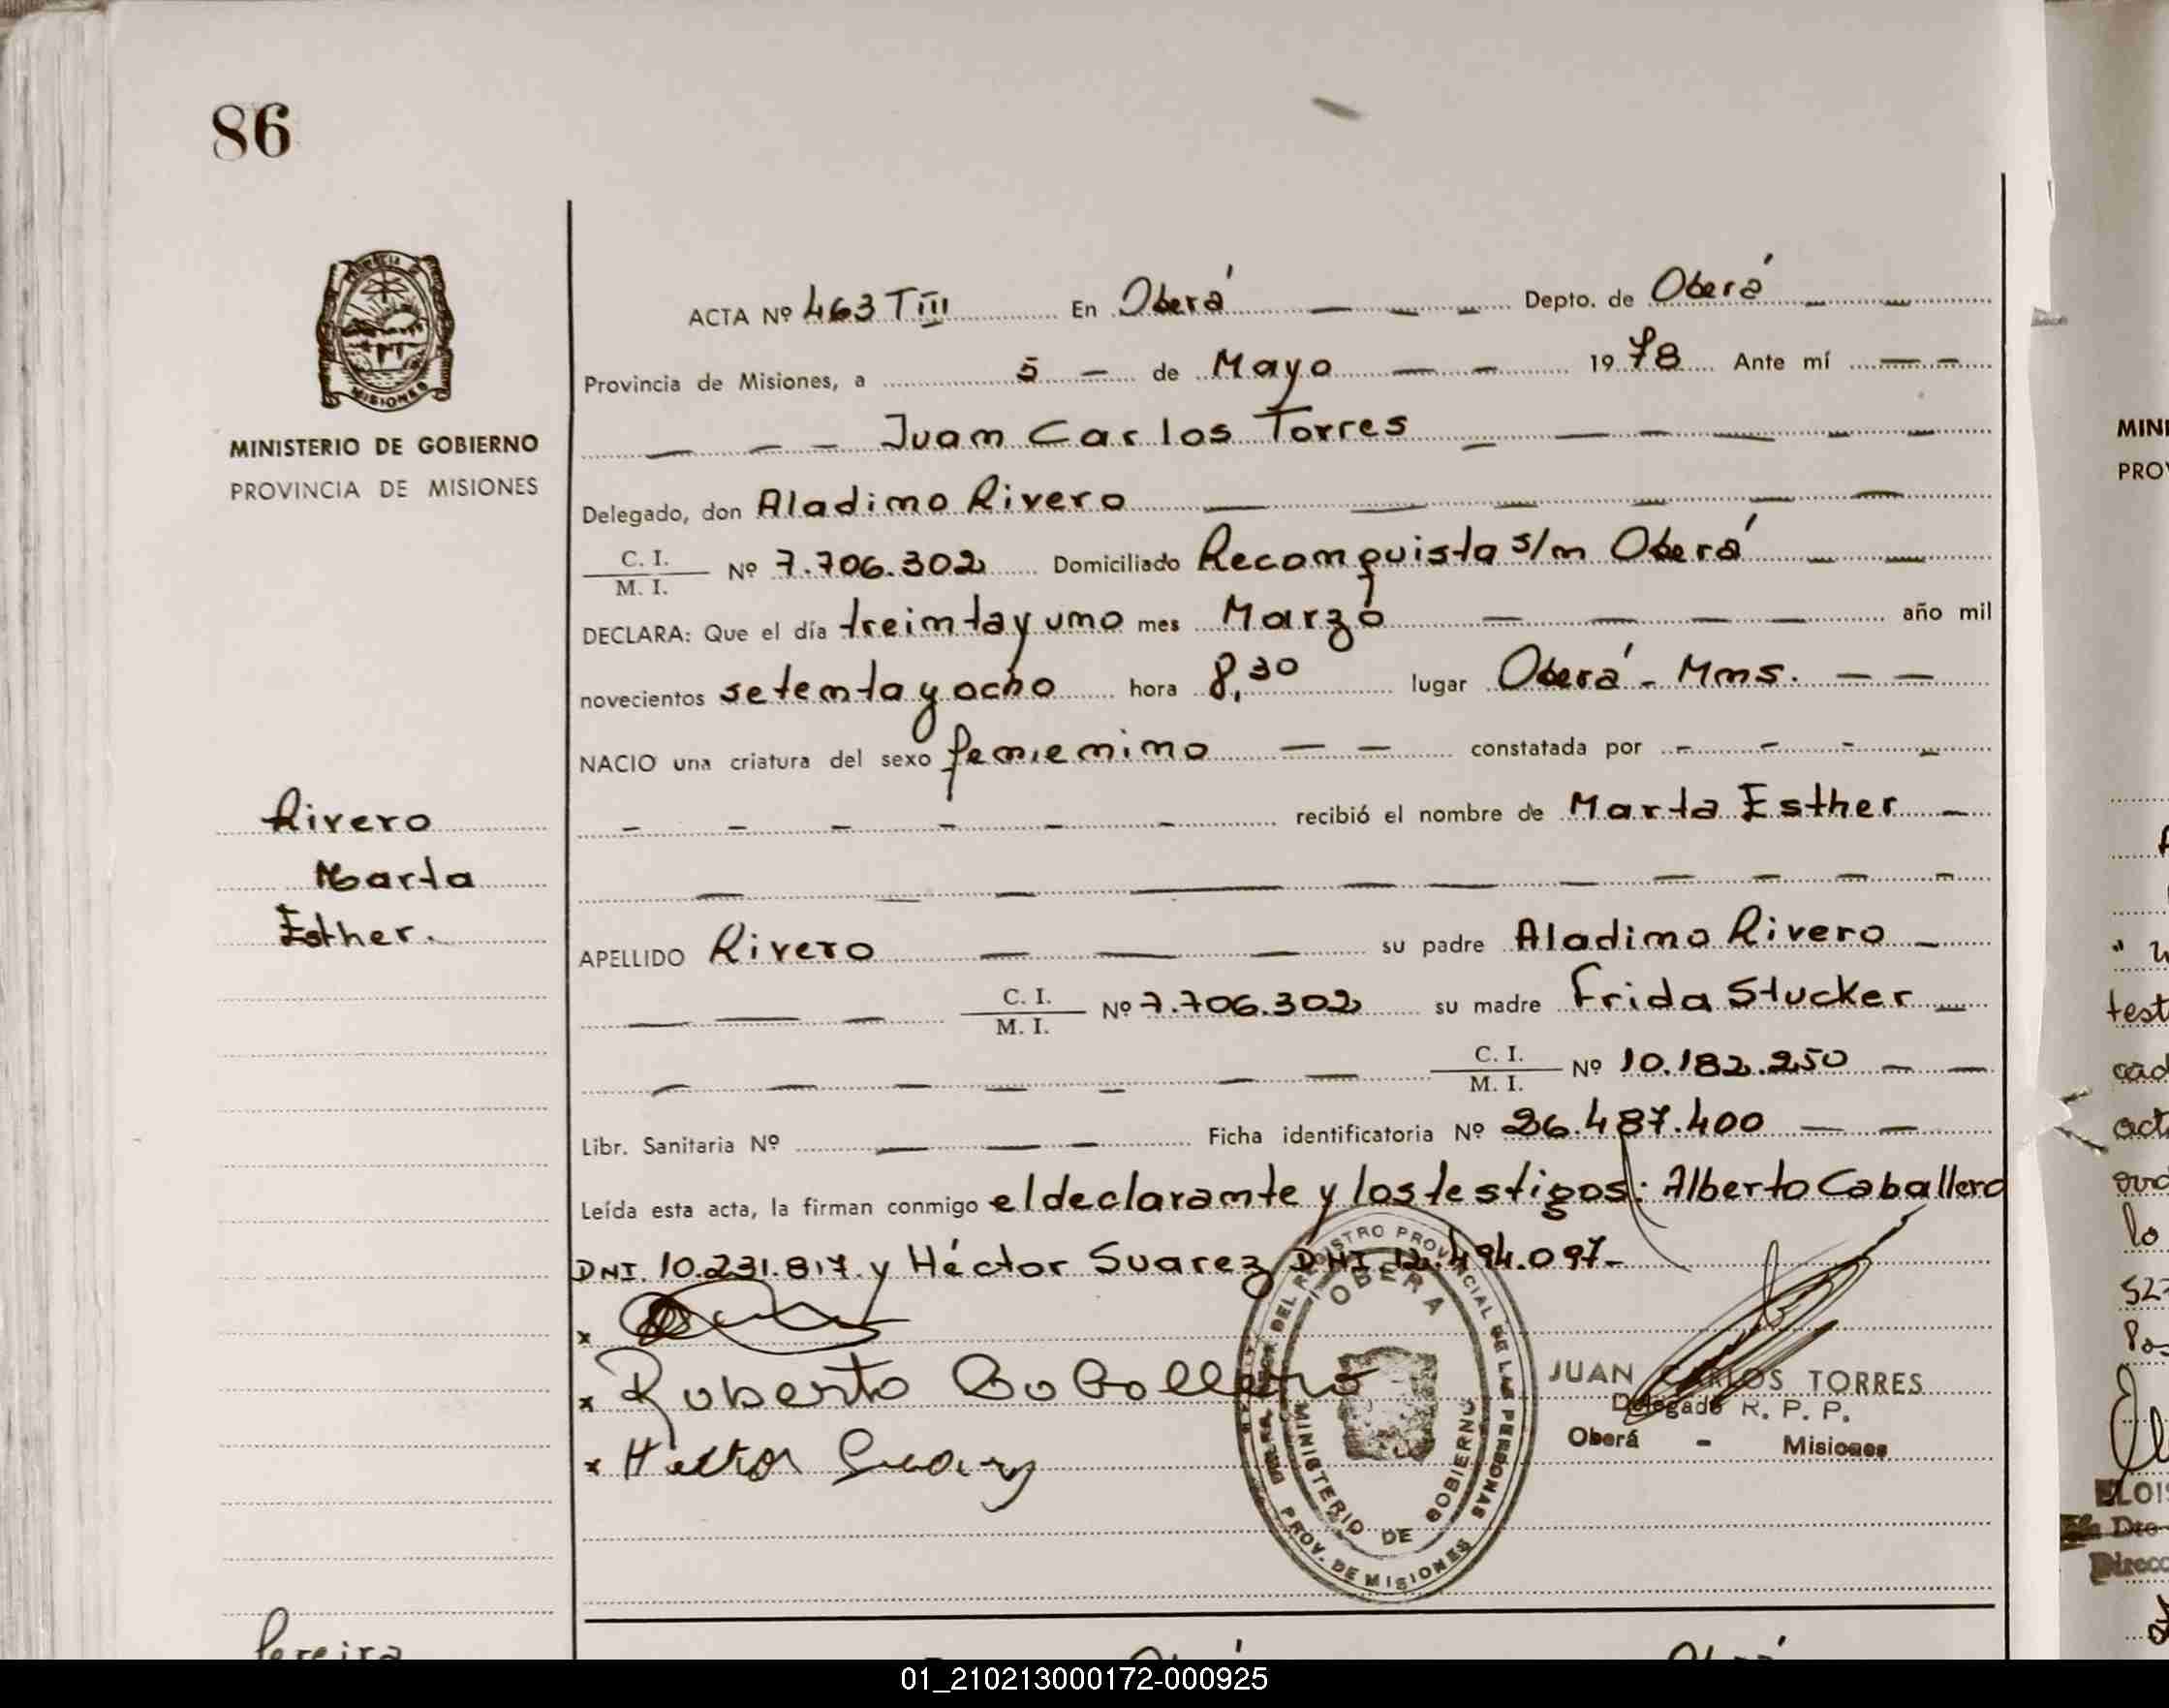 86
MINISTERIO DE GOBIERNO
PROVINCIA DE MISIONES
Rivero
Marta
Esther.
ACTA Nº 463 TIII En Oberá Depto. de Oberá
Provincia de Misiones, a 5 de Mayo 1978 Ante mí
Juan Carlos Torres
Delegado, don Aladino Rivero
C. I. / M. I. Nº 7.706.302 Domiciliado Reconquista s/n Oberá
DECLARA: Que el día treinta y uno mes Marzo año mil
novecientos setenta y ocho hora 8,30 lugar Oberá - Mnes.
NACIO una criatura del sexo femenino constatada por
recibió el nombre de Marta Esther
APELLIDO Rivero su padre Aladino Rivero
C. I. / M. I. Nº 7.706.302 su madre Frida Stucker
C. I. / M. I. Nº 10.182.250
Libr. Sanitaria Nº Ficha identificatoria Nº 26.487.400
Leída esta acta, la firman conmigo el declarante y los testigos: Alberto Caballero
DNI. 10.231.817 y Héctor Suarez DNI 12.494.097-
x
x Roberto Caballero
x Hector Suarez
JUAN CARLOS TORRES
Delegado R. P. P.
Oberá - Misiones
REGISTRO PROVINCIAL DE LAS PERSONAS
OBERA
MINISTERIO DE GOBIERNO
PROV. DE MISIONES
Pereira
MINI
PROV
01_210213000172-000925